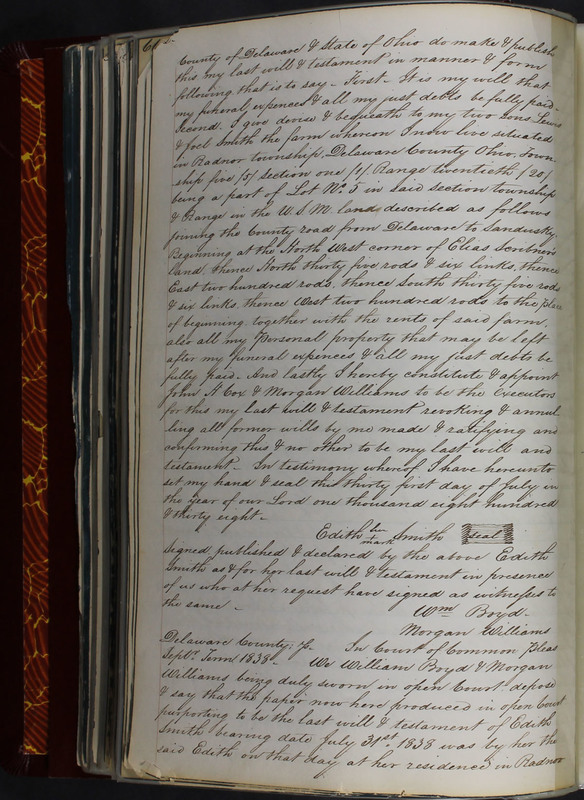 County of Delaware & State of Ohio do make & publish
this my last will & testament in manner & form
following that is to say - First - It is my will that
my funeral expences & all my just debts be fully paid -
Second. I give devise & bequeath to my two sons Lewis
& Joel Smith the farm whereon I now live situated
in Radnor township, Delaware County Ohio, Town-
ship five /5/ section one /1/ Range twentieth /20/
being a part of Lot No 5 in said section township
& Range in the U.S.M. lands described as follows
joining the County road from Delaware to Sandusky.
Beginning at the North West corner of Elias Scribners
land, thence North thirty five rods & six links, thence
East two hundred rods, thence South thirty five rods
& six links, thence West two hundred rods to the place
of beginning together with the rents of said farm,
also all my personal property that may be left
after my funeral expences & all my just debts be
fully paid. And lastly I hereby constitute & appoint
John A Cox & Morgan Williams to be the Executors
for this my last will & testament revoking & annul
ling all former wills by me made & ratifying and
confirming this & no other to be my last will and
testament - In testimony whereof I have hereunto
set my hand & seal this thirty first day of July in
the year of our Lord one thousand eight hundred
& thirty eight -
Edith her mark Smith seal
Signed published & declared by the above Edith
Smith as & for her last will & testament in presence
of us who at her request have signed as witnesses to
the same -
Wm Boyd -
Morgan Williams
Delaware County; ss. In Court of Common Pleas
Septr Term 1838 - We William Boyd & Morgan
Williams being duly sworn in open Court depose
& say that the paper now here produced in open Court
purporting to be the last will & testament of Edith
Smith bearing date July 31st 1838 was by her the
said Edith on that day at her residence in Radnor